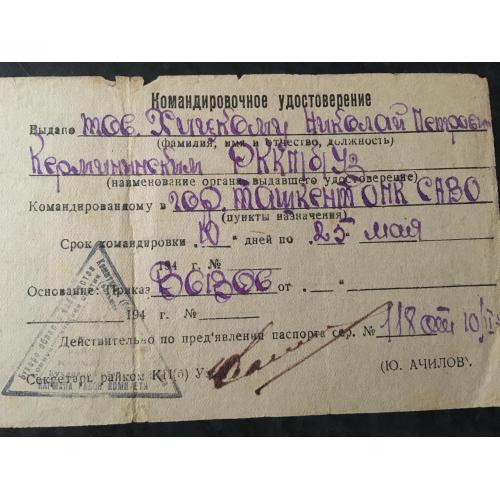 Командировочное удостоверение
Выдано тов. Хицкому Николай Петрович
(фамилия, имя и отчество, должность)
Кермининским РККП(б)Уз
(наименование органа выдавшего удостоверение)
Командированному в гор. Ташкент ОНК САВО
(пункты назначения)
Срок командировки 10 " дней по 25 мая
194 г. №
Основание: Приказ Вызов от " "
194 г. №
Действительно по предъявления паспорта сер. № 118 от 10/
Секретарь райком К(П(б) Уз
(Ю. АЧИЛОВ)